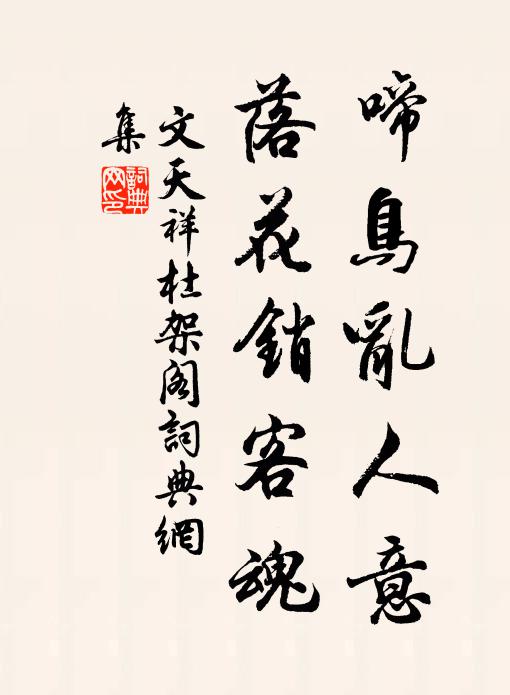 啼鳥亂人意
落花銷客魂
文天祥杜架阁詞典網
集
詞典
网印